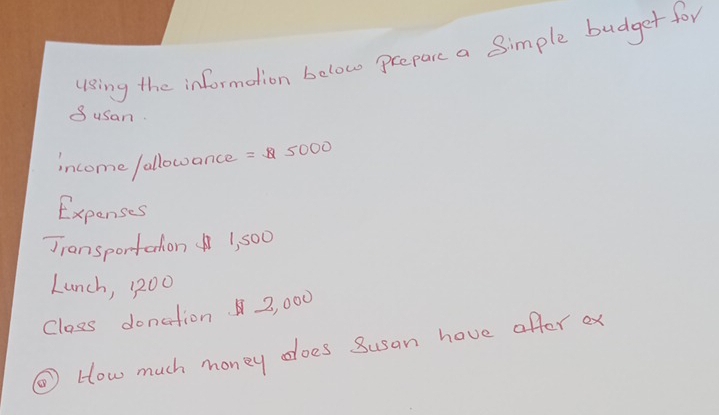 using the information below prepare a Simple budget for
Susan.
income/allowance = ₦ 5000
Expenses
Transportation ₦ 1,500
Lunch, 1,200
Class donation ₦ 2,000
(a) How much money does Susan have after ex